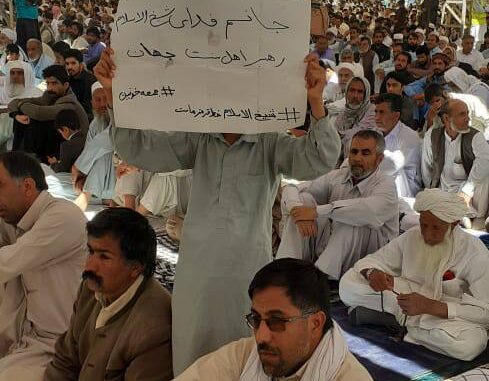 جانم فدای شیخ الاسلام
رهبر اهل سنت جهان
#جمعه خونین
#شیخ الاسلام خط قرمز ماست